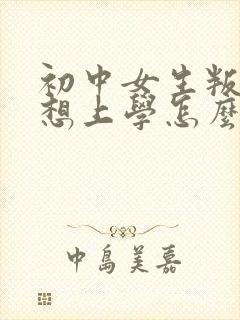 初中女生叛
想上學怎麼
中島美嘉